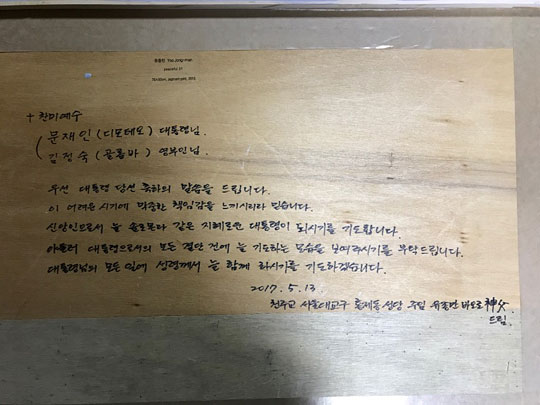 유종만 Yoo Jong-man,
✝ 찬미예수
문재인 (디모테오) 대통령님.
김정숙 (골롬바) 영부인님.
우선 대통령 당선 축하의 말씀을 드립니다.
이 어려운 시기에 막중한 책임감을 느끼시리라 믿습니다.
신앙인으로서 늘 솔로몬과 같은 지혜로운 대통령이 되시기를 기도합니다.
아울러 대통령으로서의 모든 결단 전에 늘 기도하는 모습을 보여주시기를 부탁드립니다.
대통령님의 모든 일에 성령께서 늘 함께 하시기를 기도하겠습니다.
2017. 5. 13.
천주교 서울대교구 홍제동 성당 주임 유종만 바오로 神父
드림.